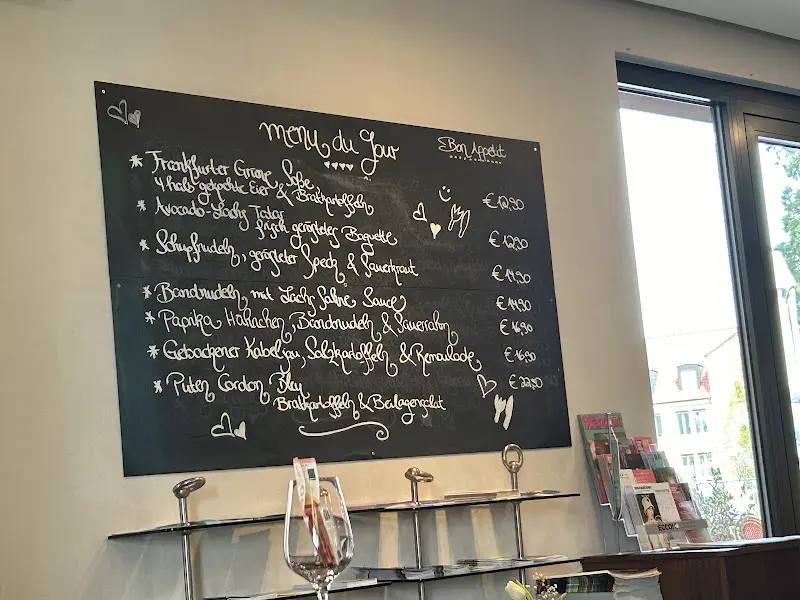 Menu du Jour
Bon Appetit
* Frankfurter Grüne Soße,
4 halb gekochte Eier & Bratkartoffeln € 12,90
* Avocado-Lachs Tatar
frisch gerösteter Baguette € 12,90
* Schupfnudeln, gerösteter Speck & Sauerkraut € 14,90
* Bandnudeln mit Lachs Sahne Sauce € 14,90
* Paprika Hähnchen, Bandnudeln & Sauerrahm € 16,90
* Gebackener Kabeljau, Salzkartoffeln & Remoulade € 16,90
* Puten Cordon Bleu € 22,90
Bratkartoffeln & Beilagensalat